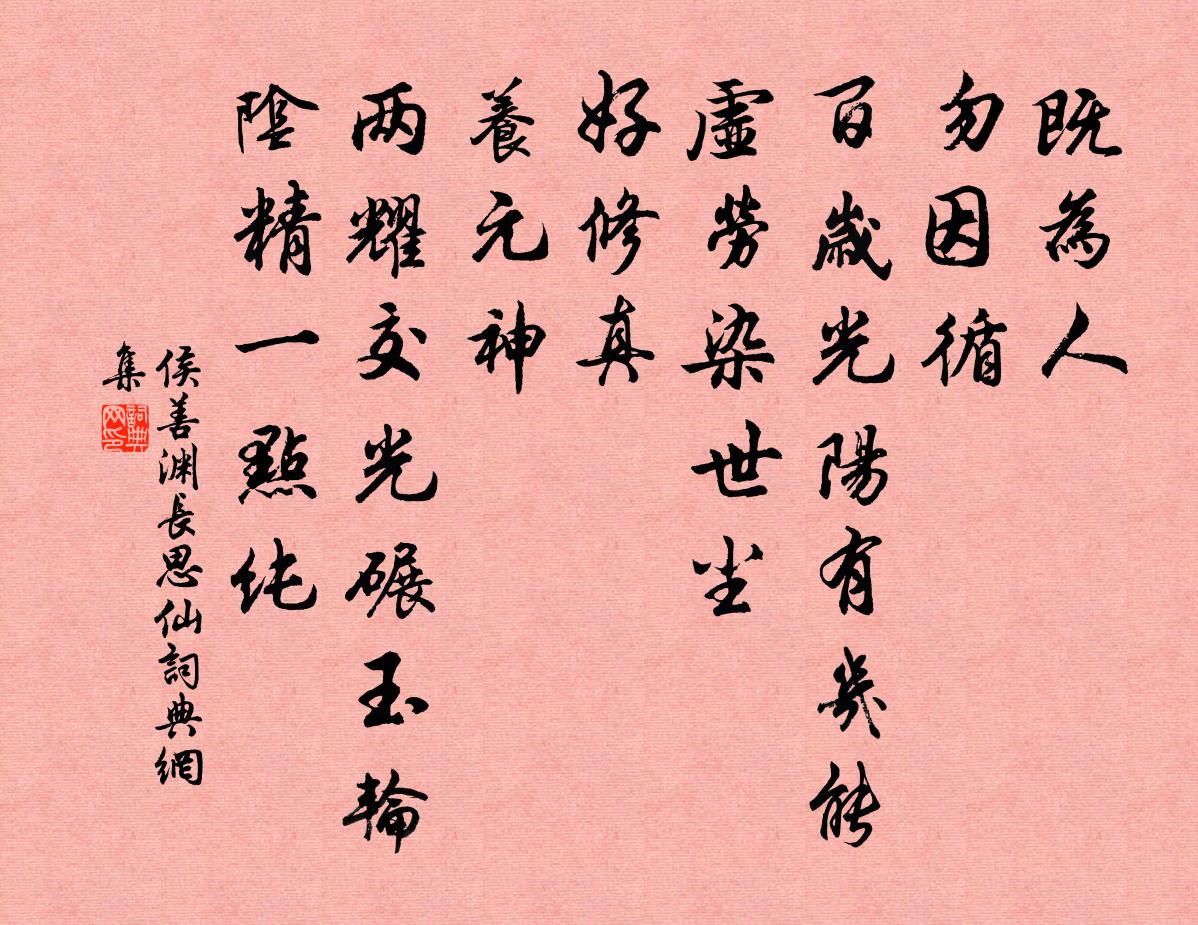 既為人
勿因循
百歲光陽有幾能
虛勞染世尘
好修真
養元神
两耀交光碾玉輪
陰精一點純
侯善渊長思仙詞典網
集
詞典
网印